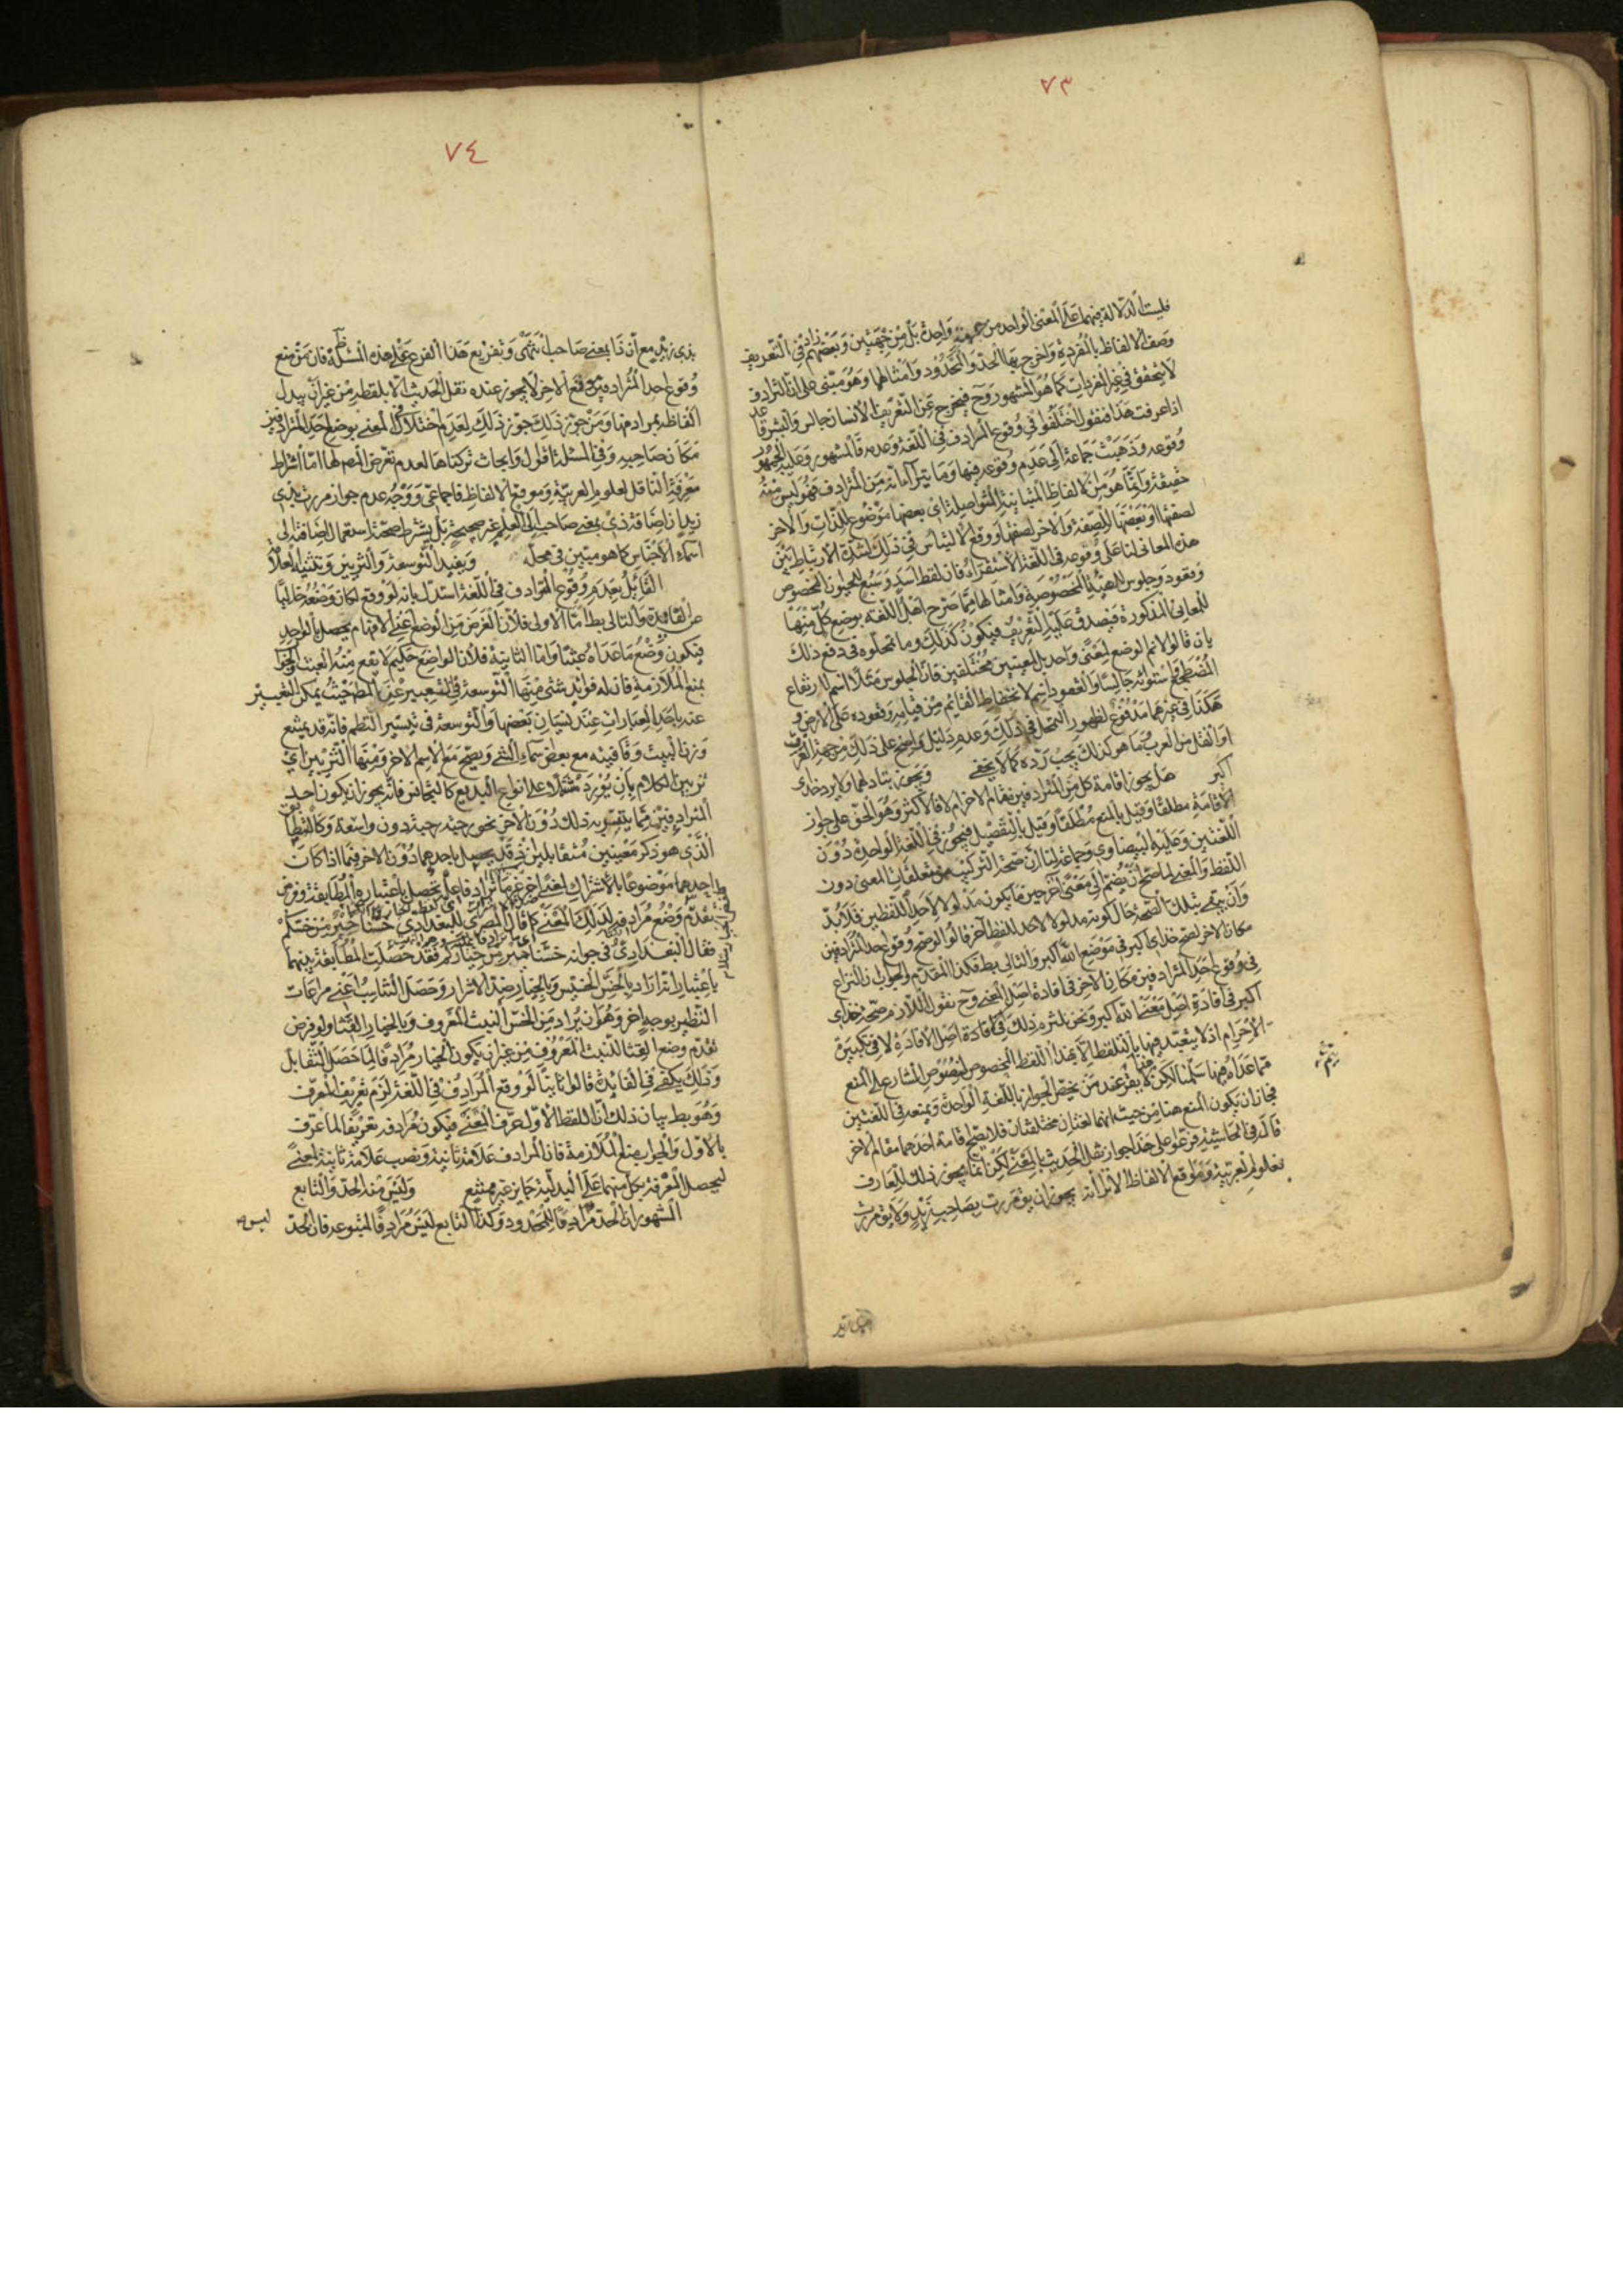 ٧٣
فليست الدلالة فيهما على المعنى الواحد من جهة واحدة بل من جهتين وبعضهم زاد في التعريف
وصف الالفاظ بالمفردة واخرج بها الحد والمحدود وامثالهما وهو مبتنى على ان الترادف
لا يتحقق في غير المفردات كما هو المشهور وح فيخرج عن التعريف الانسان جالس والبشر قاعد
اذا عرفت هذا فنقول اختلفوا في وقوع المرادف في اللغة وعدمه فالمشهور وعليه الجمهور
وقوعه وذهبت جماعة الى عدم وقوعه فيها وما يترأا انه من المترادف فهو ليس منه
حقيقة وانما هو من الالفاظ المتباينة المتواصلة اى بعضها موضوع للذات والاخر
لصفتها او بعضها للصفة والاخر لصفتها ووقع الالتباس في ذلك لشدة الارتباط بين
هذه المعاني لنا على وقوعه في اللغة الاستقراء فان لفظ اسد وسبع للحيوان المخصوص
وقعود وجلوس للهيئة المخصوصة وامثالها مما صرح اهل اللغة بوضع كل منها
للمعاني المذكورة فيصدق عليه التعريف فيكون كذلك وما تمحلوه في دفع ذلك
بان قالوا لانم الوضع لمعنى واحد بل لمعنيين مختلفين فان الجلوس مثلا اسم لارتفاع
المضطجع استوائه جالسا والقعود اسم لانخفاط القائم من قيامه وقعوده على الارض و
هكذا في غيرهما مدفوع لظهور التمحل في ذلك وعدم دليل واضح على ذلك من جهة العرف
او النقل من العرب فما هو كذلك يجب رده كما لا يخفى ويجوز تبادلهما ولا يرد خداى
اكبر هل يجوز اقامة كل من المترادفين مقام الاخر ام لا فالاكثر وهو الحق على جواز
الاقامة مطلقا وقيل بالمنع مطلقا وقيل بالتفصيل فيجوز في اللغة الواحدة دون
اللغتين وعليه البيضاوي وجماعة لنا ان صحة التركيب من متعلقات المعنى دون
اللفظ والمعنى لما صح ان يضم الى معنى آخر حين ما يكون مدلولا لاحد اللفظين فلا بد
وان يبقى بتلك الصحة حال كونه مدلولا لاحد اللفظ آخر قالوا لو صح وقوع احد المترادفين
مكان الاخر لصح خداى اكبر في موضع الله اكبر والتالى بط فكذا المقدم والجواب ان النزاع
في وقوع احد المترادفين مكان الاخر في افادة اصل المعنى وح نقول اللازم صحة خداى
اكبر في افادة اصل معنى الله اكبر ونحن نلتزم ذلك في افادة اصل الافادة لا في تكبيرة
الاحرام اذ لا يتعبد فيها بالتلفظ الا بهذا اللفظ المخصوص لنصوص الشارع على المنع
مما عداه فيها سلمنا لكن لا يقع عند من يخص الجواز باللغة الواحدة ويمنعه في اللغتين
فجاز ان يكون المنع هنا من حيث انهما لغتان مختلفتان فلا يصح اقامة احدهما مقام الاخر
قال في الحاشية فرعوا على هذا جواز نقل الحديث بالمعنى لكن انما يجوز ذلك للعارف
بعلوم العربية ومواقع الالفاظ الا ترا انه يجوز ان يق مررت بصاحب زيد ولا يق مررت
بذى زيد
٧٤
بذى زيد مع ان ذا بمعنى صاحب انتهى وتفريع هذا الفرع على هذه المسئلة ظ فان من منع
وقوع احد المترادفين موقع الاخر لا يجوز عنده نقل الحديث الا بلفظه من غير ان يبدل
الفاظه بمرادفها ومن جوز ذلك جوز ذلك لعدم اختلاف المعنى بوضع احد المترادفين
مكان صاحبه وفي المسئلة اقوال وابحاث تركناها لعدم تعرض المصم لها اما اشتراط
معرفة الناقل لعلوم العربية ومواقع الالفاظ فاجماعي ووجه عدم جواز مررت بذى
زيد ان اضافة ذى بمعنى صاحب الى العلم غير صحيح بل يشترط صحة استعمالها اضافته الى
اسماء الاجناس كما هو مبين في محله ويفيد التوسعة والتزيين وتثنية العلام
القائل بعدم وقوع المترادف في اللغة استدل بانه لو وقع لكان وضعه خاليا
عن الفائدة والتالى بط اما الاولى فلان الغرض من الوضع اعنى الافهام يحصل بالواحد
فيكون وضع ما عداه عبثا واما الثانية فلان الواضع حكيم لا يقع منه العبث والجواب
بمنع الملازمة فان له فوائد شتى منها التوسعة في التعبير عن المط حيث يمكن التعبير
عنه باحد العبارات عند نسيان بعضها والتوسعة في تيسير النظم فانه قد يمتنع
وزن البيت وقافيته مع بعض اسماء الشئ ويصح مع الاسم الاخر ومنها التزيين اي
تزيين الكلام بان يورد مشتملا على انواع البديع كالتجانس فانه يجوز ان يكون احد
المترادفين مما يتيسر به ذلك دون الاخر نحو رحبة رحبة دون واسعة وكالتطابق
الذي هو ذكر معنيين متقابلين اذ قد يحصل باحدهما دون الاخر فيما اذا كان
احدهما موضوعا بالاشتراك لمعنى اخر غير ما ترادفا عليه يحصل باعتباره المطابقة وفرض
تقدم وضع مرادفه لذلك المعنى كما قال المصرى للبغدادي خسنا خير من خسكم
فقال البغدادي في جوابه خسنا خير من خياركم فقد حصلت المطابقة بينهما
باعتبار ان ارادة بالخس الخسيس وبالخيار ضد الاشرار وحصل التناسب اعنى مراعات
النظير بوجه اخر وهو ان يراد من الخس النبت المعروف وبالخيار القثا ولو فرض
تقدم وضع القثا للنبت المعروف من غير ان يكون الخيار مرادفا لما حصل التقابل
وذلك يكفى في الفائدة قالوا ثانيا لو وقع المرادف في اللغة لزم تعريف المعرف
وهو بط بيان ذلك ان اللفظ الاول عرف المعنى فيكون مرادفه تعريفا لما عرف
بالاول والجواب بمنع الملازمة فان المرادف علامة ثانية ونصب علامة ثانية لمعنى
ليحصل المعرفة بكل منهما على البدلية جايز غير ممتنع وليس منه الحد والتابع
المشهور ان الحد مرادفا للمحدود وكذا التابع ليس مرادفا لمتبوعه فان الحد
ليس